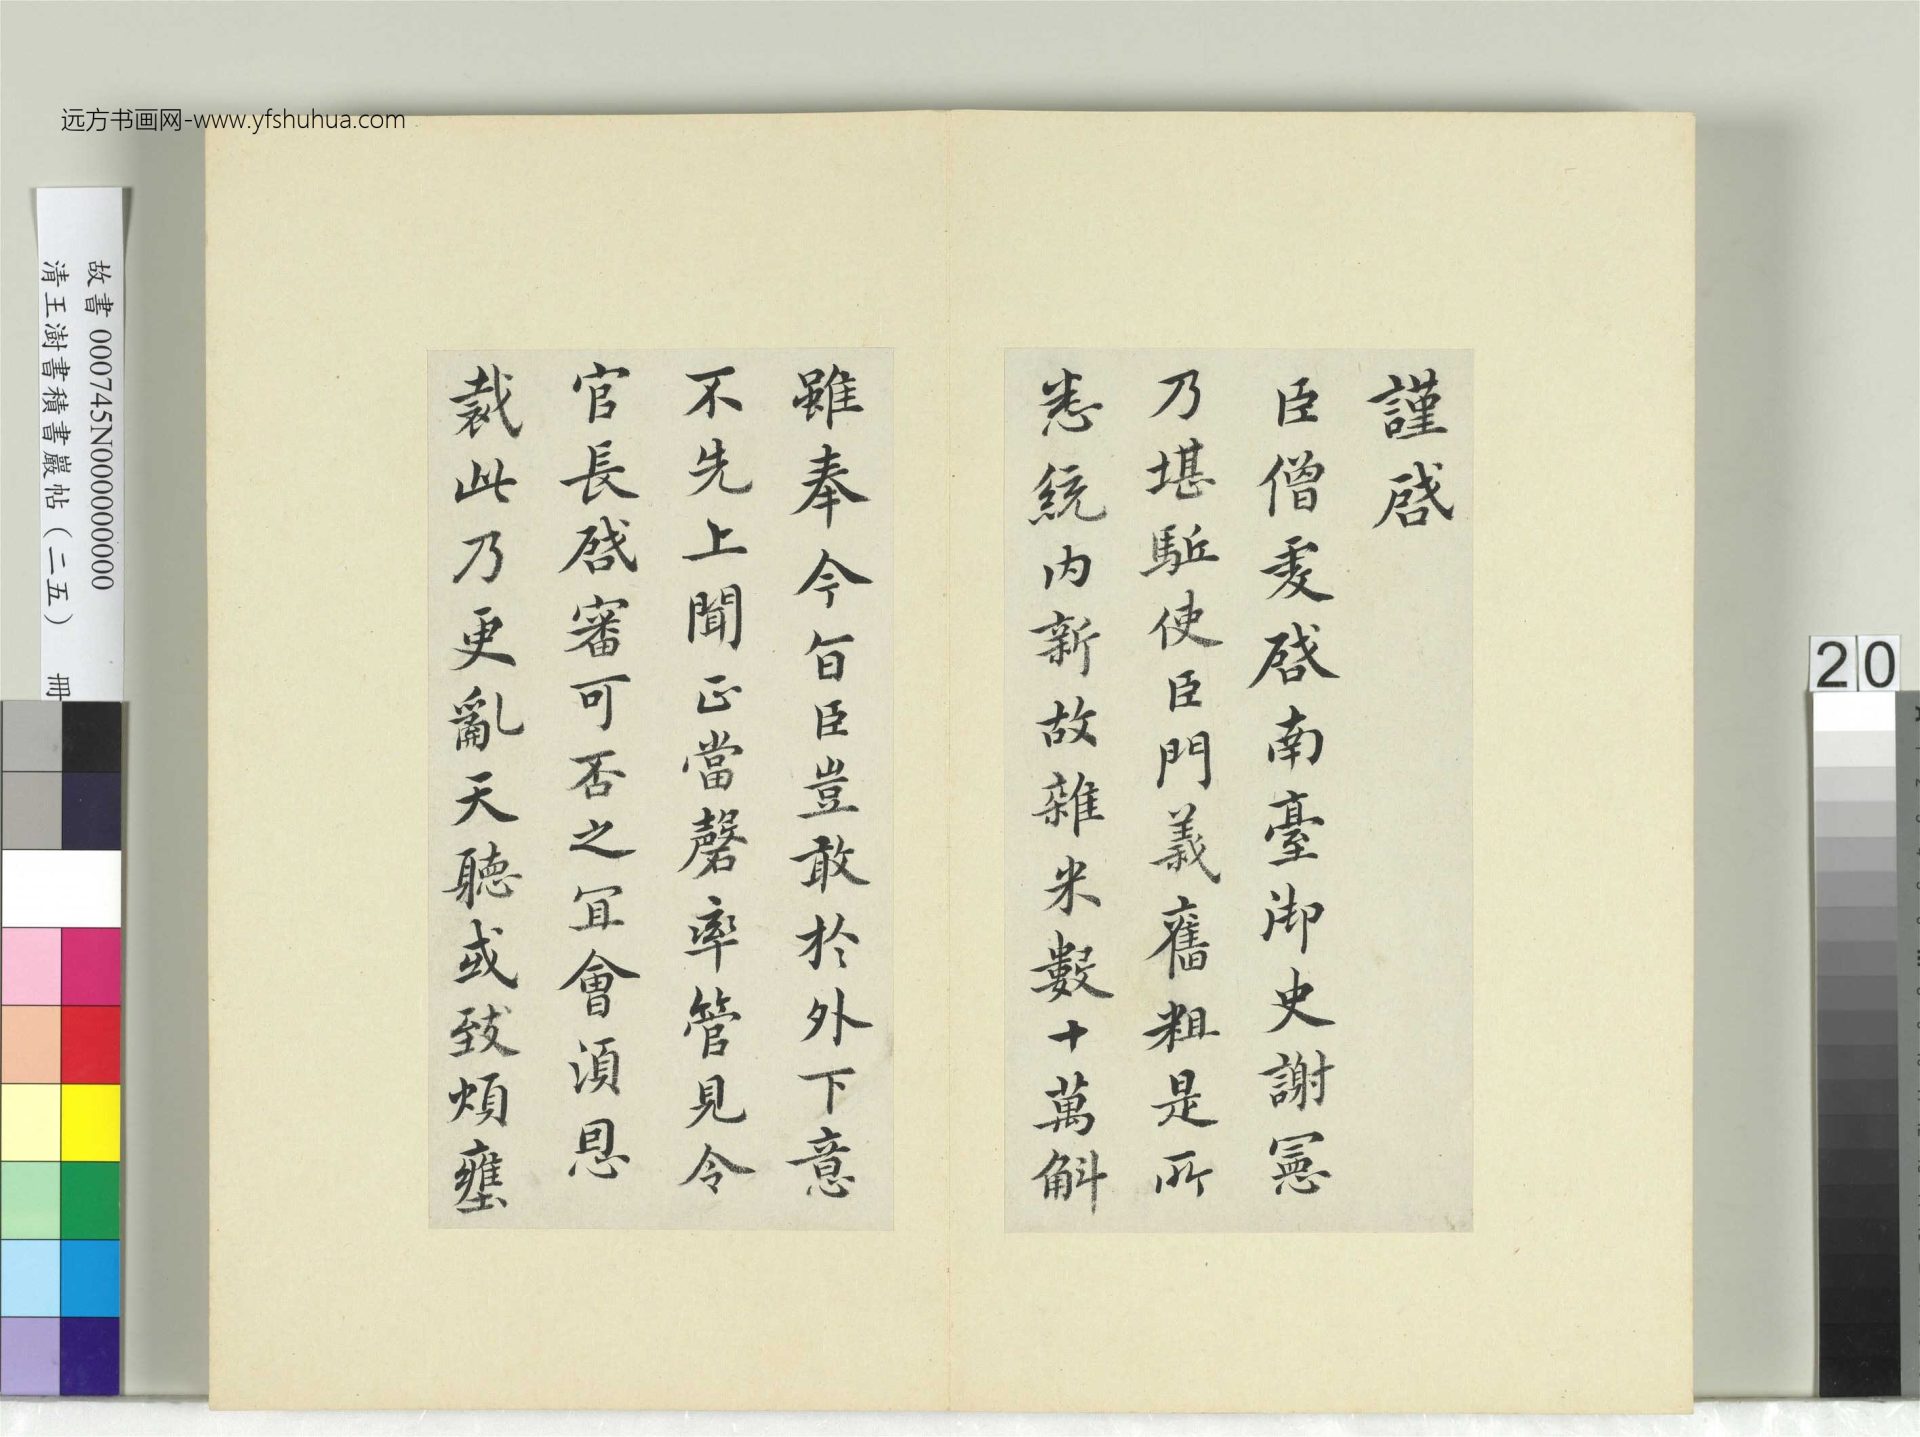 远方书画网-www.yfshuhua.com
故書 000745N000000000
清王澍書積書巖帖（二五） 冊
20
謹啓
臣僧虔啓南臺御史謝憲
乃堪駈使臣門義舊粗是所
悉統内新故雜米數十萬斛
雖奉令旨臣豈敢於外下意
不先上聞正當罄率管見令
官長啓審可否之宜會須恩
裁此乃更亂天聽或致煩壅